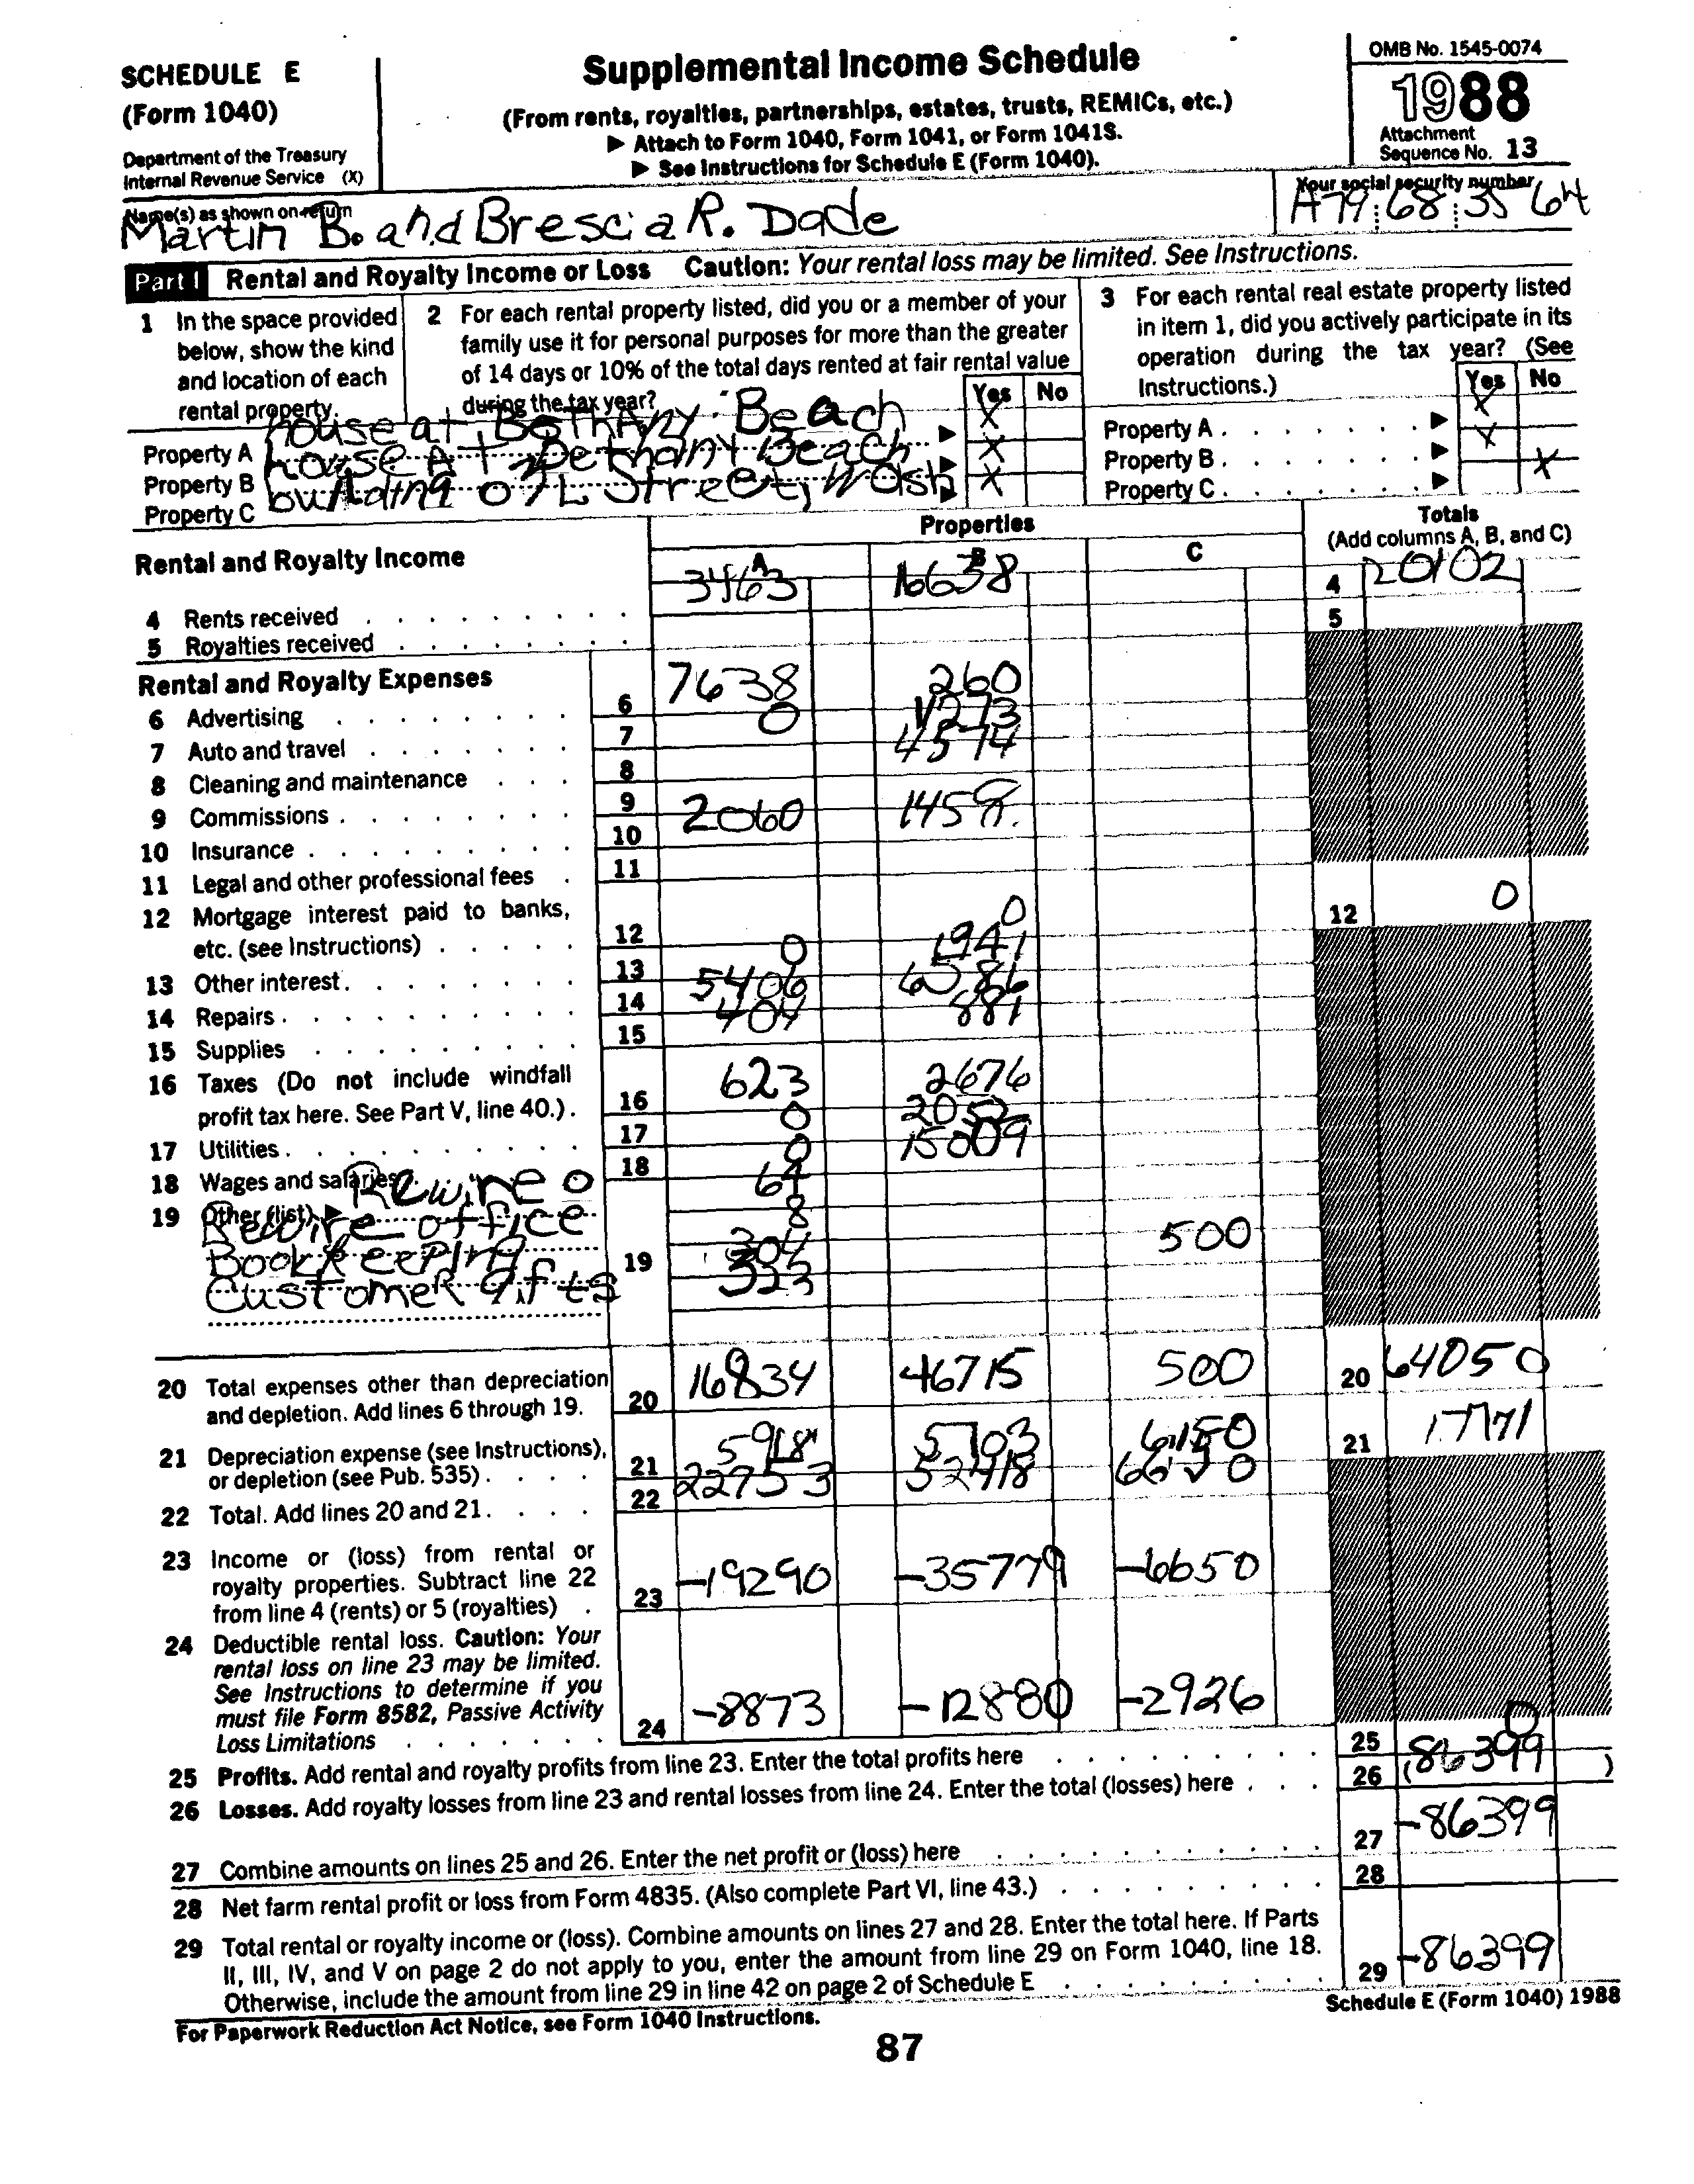 SCHEDULE E
(Form 1040)
Department of the Treasury
Internal Revenue Service (X)
Supplemental Income Schedule
(From rents, royalties, partnerships, estates, trusts, REMICs, etc.)
▶ Attach to Form 1040, Form 1041, or Form 1041S.
▶ See Instructions for Schedule E (Form 1040).
OMB No. 1545-0074
1988
Attachment
Sequence No. 13
Name(s) as shown on return
Martin B. and Brescia R. Dade
Your social security number
A79 68 35 64
Part I Rental and Royalty Income or Loss Caution: Your rental loss may be limited. See Instructions.
1 In the space provided
below, show the kind
and location of each
rental property.
2 For each rental property listed, did you or a member of your
family use it for personal purposes for more than the greater
of 14 days or 10% of the total days rented at fair rental value
during the tax year?
Yes No
3 For each rental real estate property listed
in item 1, did you actively participate in its
operation during the tax year? (See
Instructions.)
Yes No
Property A house at BethAny Beach ▶ X
Property B house At Bethany Beach ▶ X
Property C building on L Street, Wash ▶ X
Property A . . . . . . . ▶ X
Property B . . . . . . . ▶ X
Property C . . . . . . . ▶ X
Rental and Royalty Income
Properties
A B C
Totals
(Add columns A, B, and C)
4 Rents received 3463 16638 4 20102
5 Royalties received 5
Rental and Royalty Expenses
6 Advertising 6 7638 260
7 Auto and travel 7 0 11273
8 Cleaning and maintenance 8 4574
9 Commissions 9 2060 1459
10 Insurance 10
11 Legal and other professional fees 11
12 Mortgage interest paid to banks,
etc. (see Instructions) 12 0 12 0
13 Other interest 13 0 1941
14 Repairs 14 5406 6586
15 Supplies 15 404 881
16 Taxes (Do not include windfall
profit tax here. See Part V, line 40.) 16 623 2676
17 Utilities 17 0 2052
18 Wages and salaries 18 0 15009
19 Other (list) ▶ Rewire o 64
Rewire office 8
BookKeeping 19 304 500
Customer gifts 323
20 Total expenses other than depreciation
and depletion. Add lines 6 through 19. 20 16834 46715 500 20 64050
21 Depreciation expense (see Instructions),
or depletion (see Pub. 535) 21 5918 5703 6150 21 17771
22 Total. Add lines 20 and 21. 22 22753 52418 6650
23 Income or (loss) from rental or
royalty properties. Subtract line 22
from line 4 (rents) or 5 (royalties) 23 -19290 -35779 -6650
24 Deductible rental loss. Caution: Your
rental loss on line 23 may be limited.
See Instructions to determine if you
must file Form 8582, Passive Activity
Loss Limitations 24 -8873 -12880 -2926
25 Profits. Add rental and royalty profits from line 23. Enter the total profits here 25 0
26 Losses. Add royalty losses from line 23 and rental losses from line 24. Enter the total (losses) here 26 (86399)
27 Combine amounts on lines 25 and 26. Enter the net profit or (loss) here 27 -86399
28 Net farm rental profit or loss from Form 4835. (Also complete Part VI, line 43.) 28
29 Total rental or royalty income or (loss). Combine amounts on lines 27 and 28. Enter the total here. If Parts
II, III, IV, and V on page 2 do not apply to you, enter the amount from line 29 on Form 1040, line 18.
Otherwise, include the amount from line 29 in line 42 on page 2 of Schedule E 29 -86399
For Paperwork Reduction Act Notice, see Form 1040 Instructions.
Schedule E (Form 1040) 1988
87